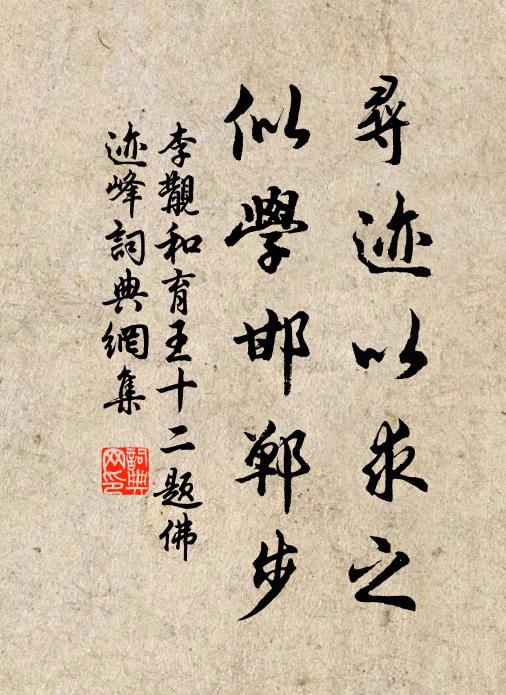 尋迹以求之
似學邯鄲步
李覯和育王十二題佛
迹峰詞典網集
詞典網印